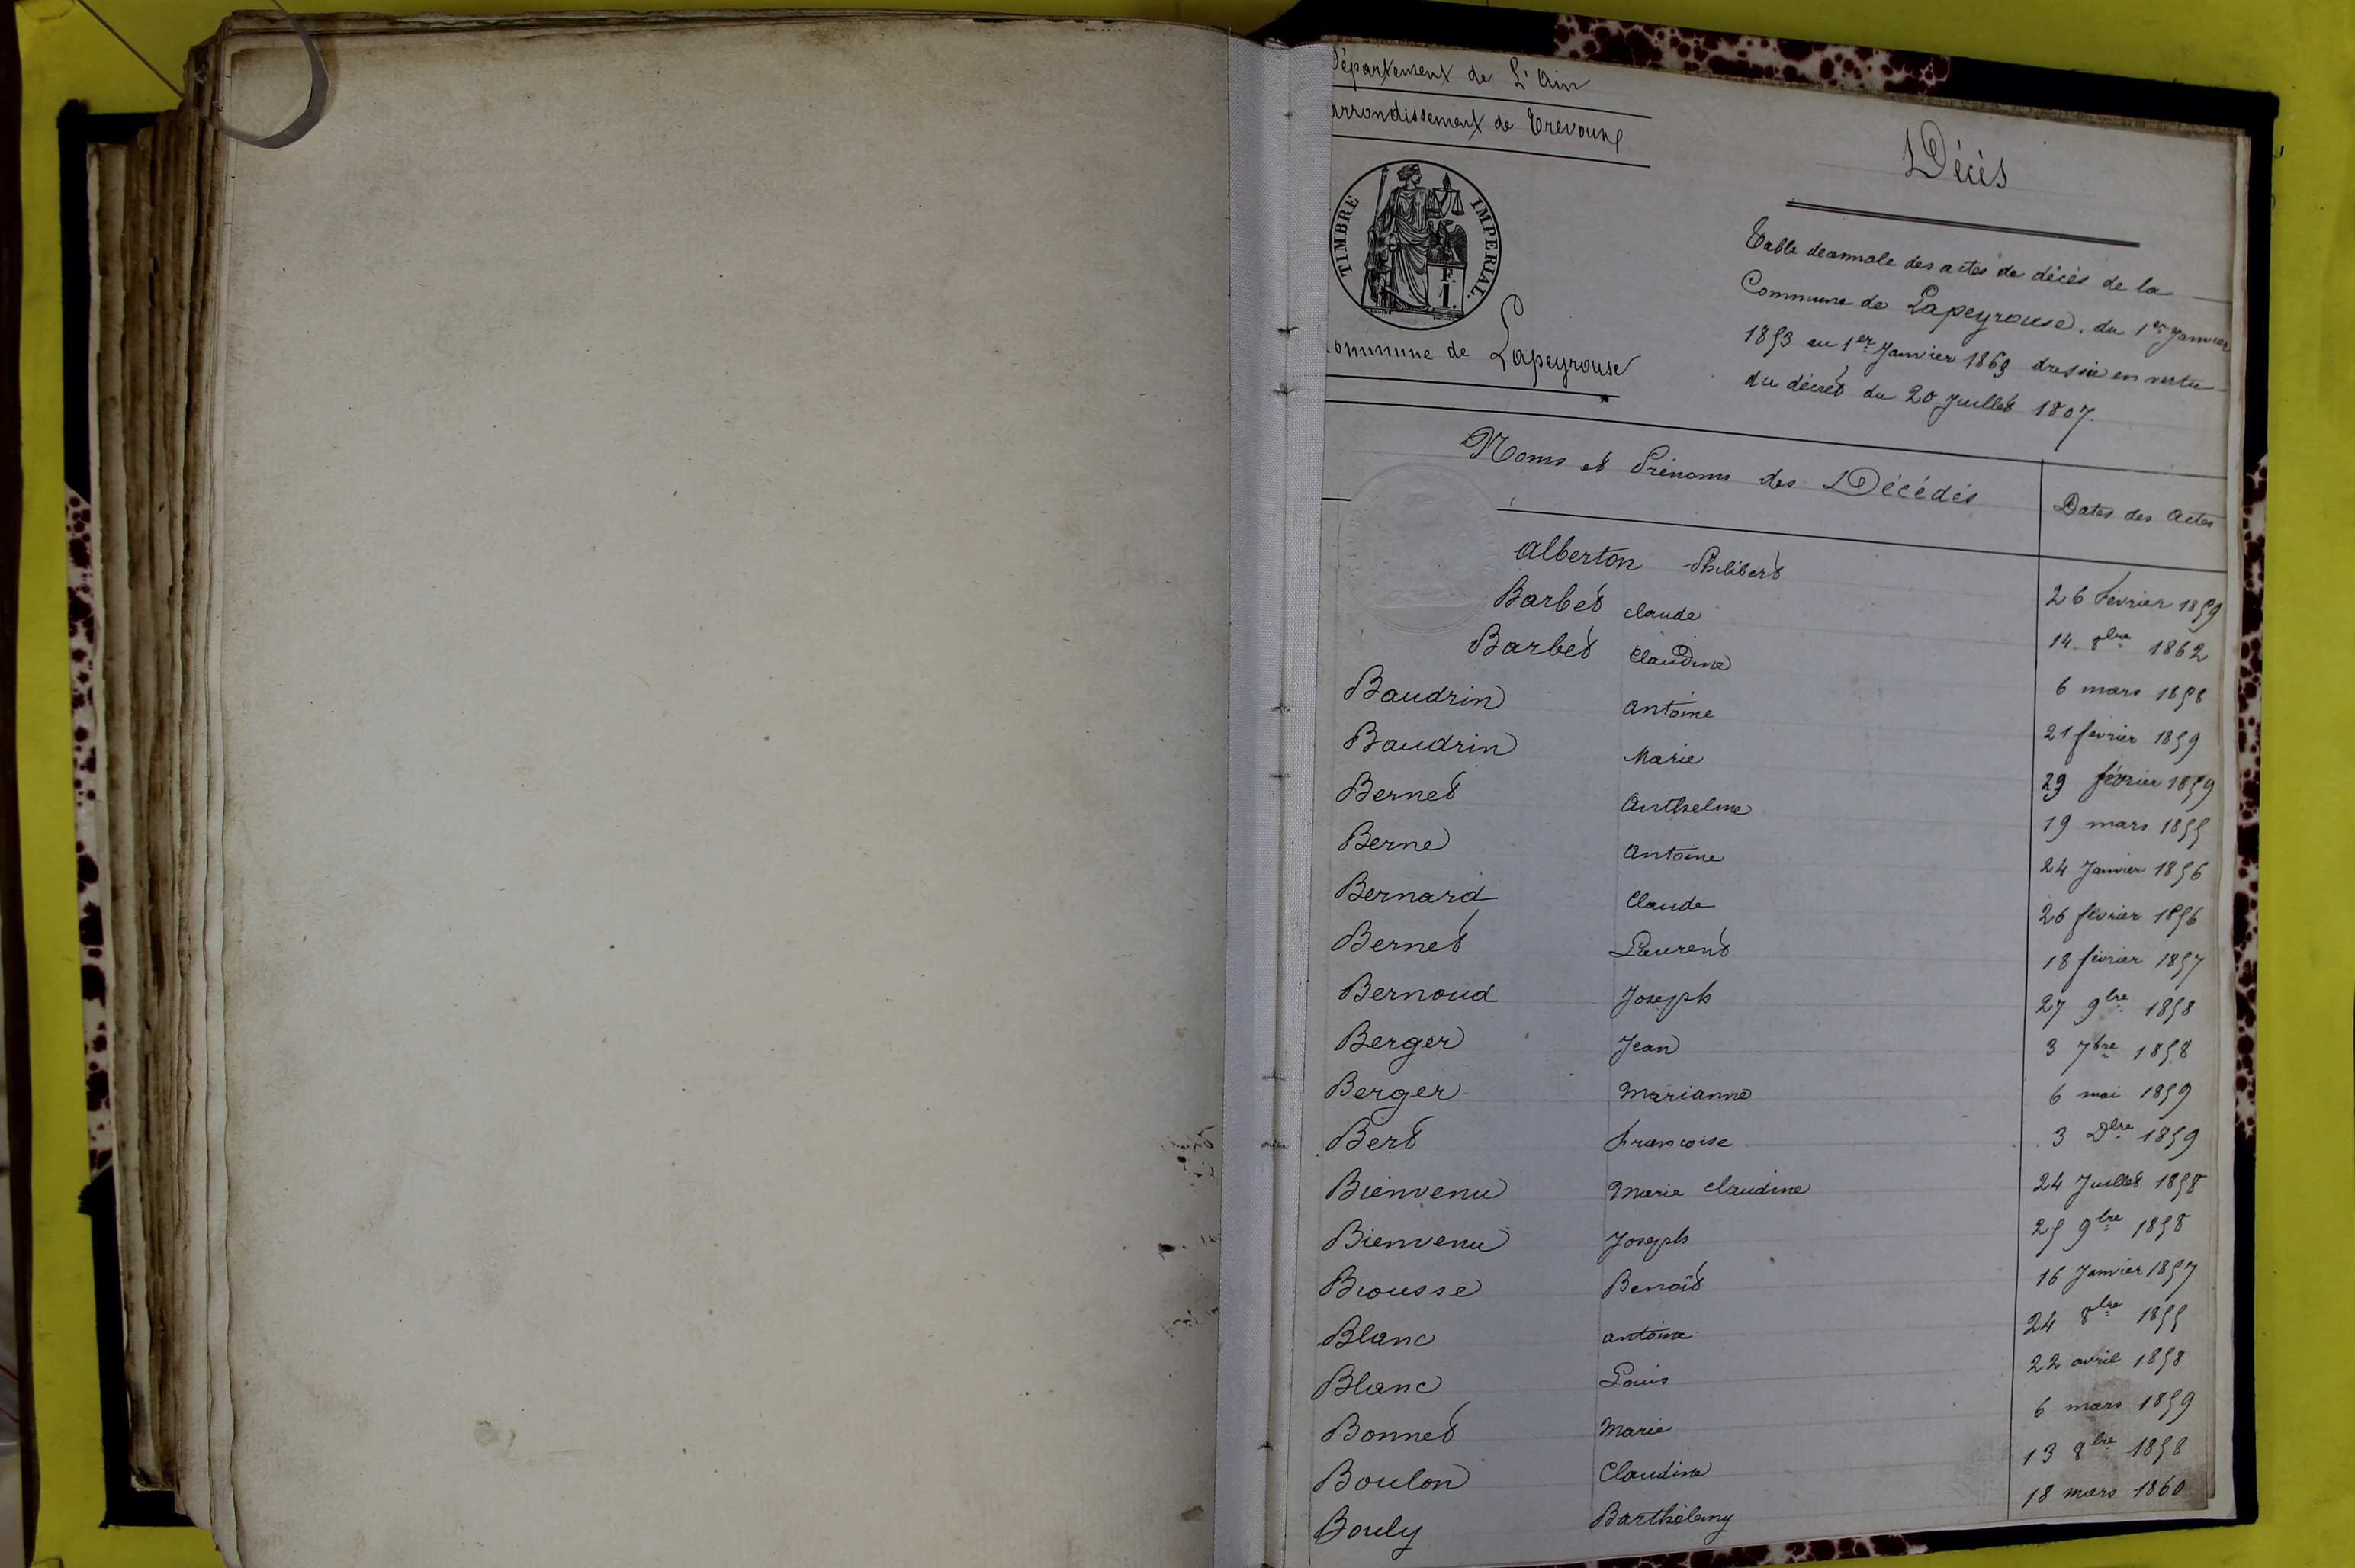 Département de L'Ain
arrondissement de Trevoux
TIMBRE IMPERIAL.
F.
1.
Commune de Lapeyrouse
Décès
Table decennale des actes de décès de la
Commune de Lapeyrouse, du 1er Janvier
1853 au 1er Janvier 1863 dressée en vertu
du décret du 20 Juillet 1807.
Noms et Prénoms des Décédés Dates des Actes
Alberton Philibert 26 Février 1859
Barbet Claude 14 8bre 1862
Barbet Claudine 6 mars 1858
Baudrin Antoine 21 février 1859
Baudrin Marie 29 février 1859
Bernet Anthelme 19 mars 1855
Berne Antoine 24 Janvier 1856
Bernard Claude 26 février 1856
Bernet Laurent 18 février 1857
Bernoud Joseph 27 9bre 1858
Berger Jean 3 7bre 1858
Berger Marianne 6 mai 1859
Bert Francoise 3 Dbre 1859
Bienvenu Marie Claudine 24 Juillet 1858
Bienvenu Joseph 25 9bre 1858
Biousse Benoit 16 Janvier 1857
Blanc antoine 24 8bre 1855
Blanc Louis 22 avril 1858
Bonnet Marie 6 mars 1859
Boulon Claudine 13 8bre 1858
Bouly Barthélemy 18 mars 1860